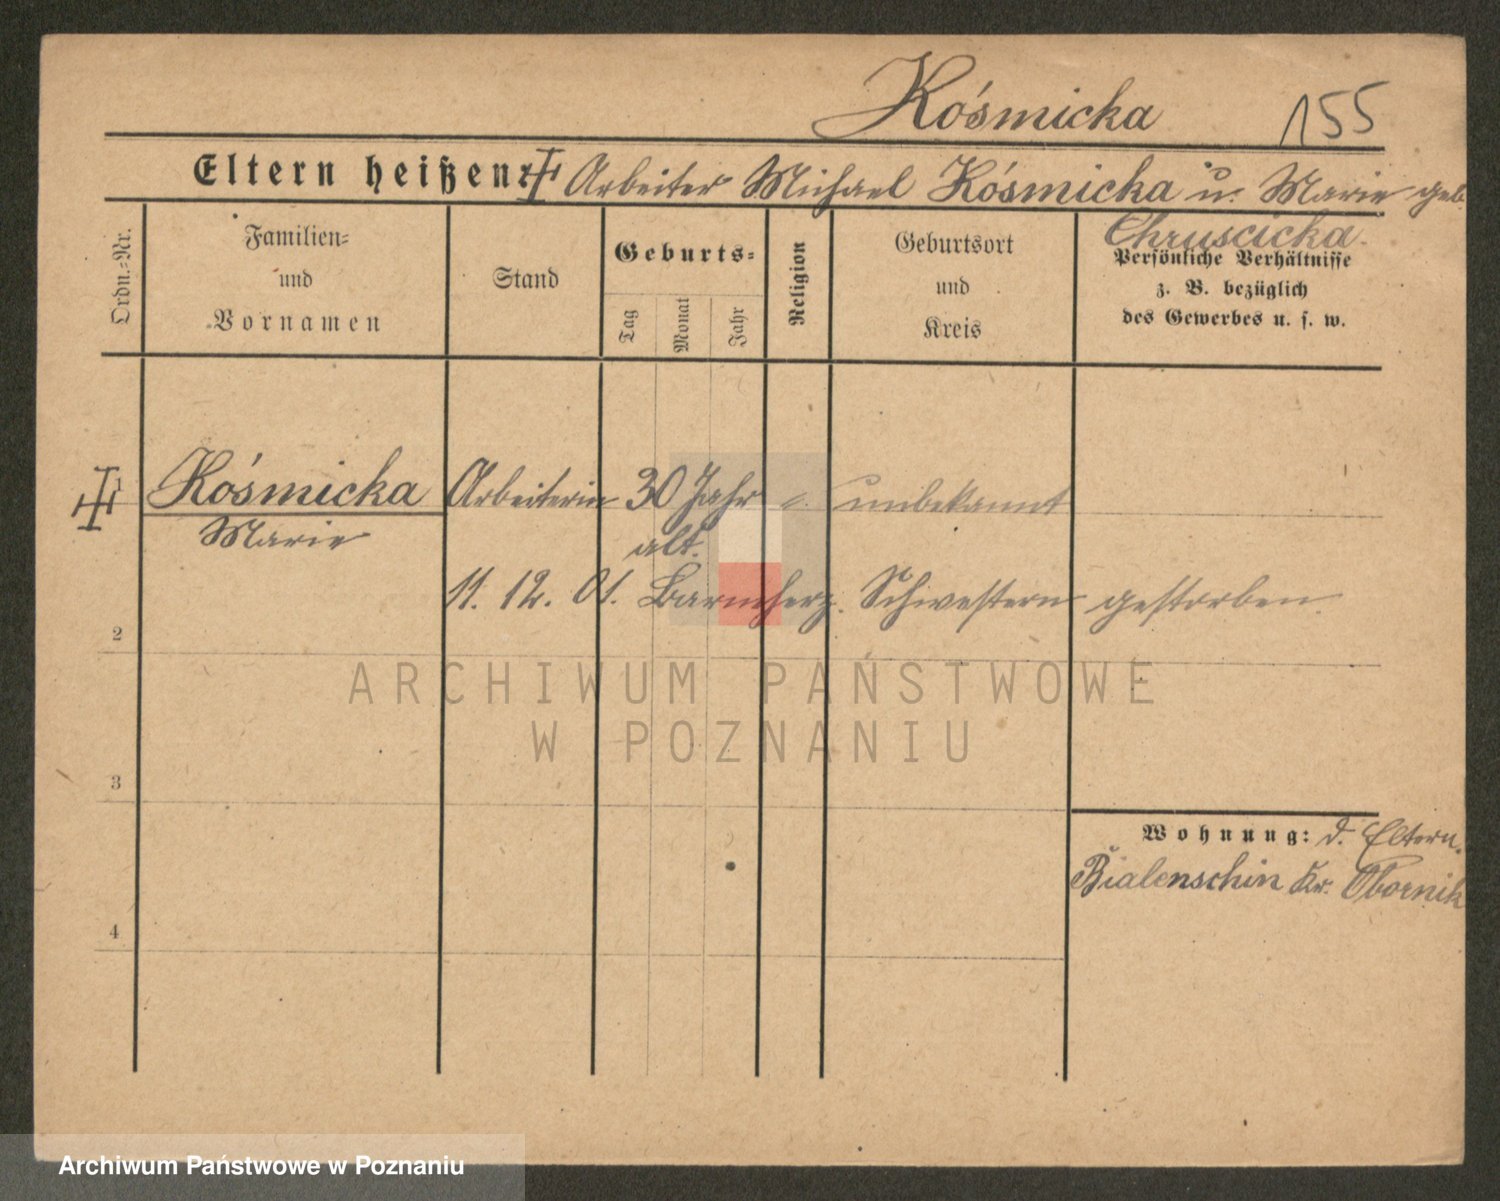 Kósmicka 155
Eltern heißen: Arbeiter Michael Kósmicka u. Marie geb.
Chruscicka.
Ordn.-Nr.
Familien-
und
Vornamen
Stand
Geburts-
Tag
Monat
Jahr
Religion
Geburtsort
und
Kreis
Persönliche Verhältnisse
z. B. bezüglich
des Gewerbes u. s. w.
1 Kósmicka Arbeiterin 30 Jahr unbekannt
Marie alt.
11. 12. 01. Barmherz. Schwestern gestorben.
2
ARCHIWUM PAŃSTWOWE
W POZNANIU
3
Wohnung: d. Eltern.
Bialenschin Kr. Obornik
4
Archiwum Państwowe w Poznaniu